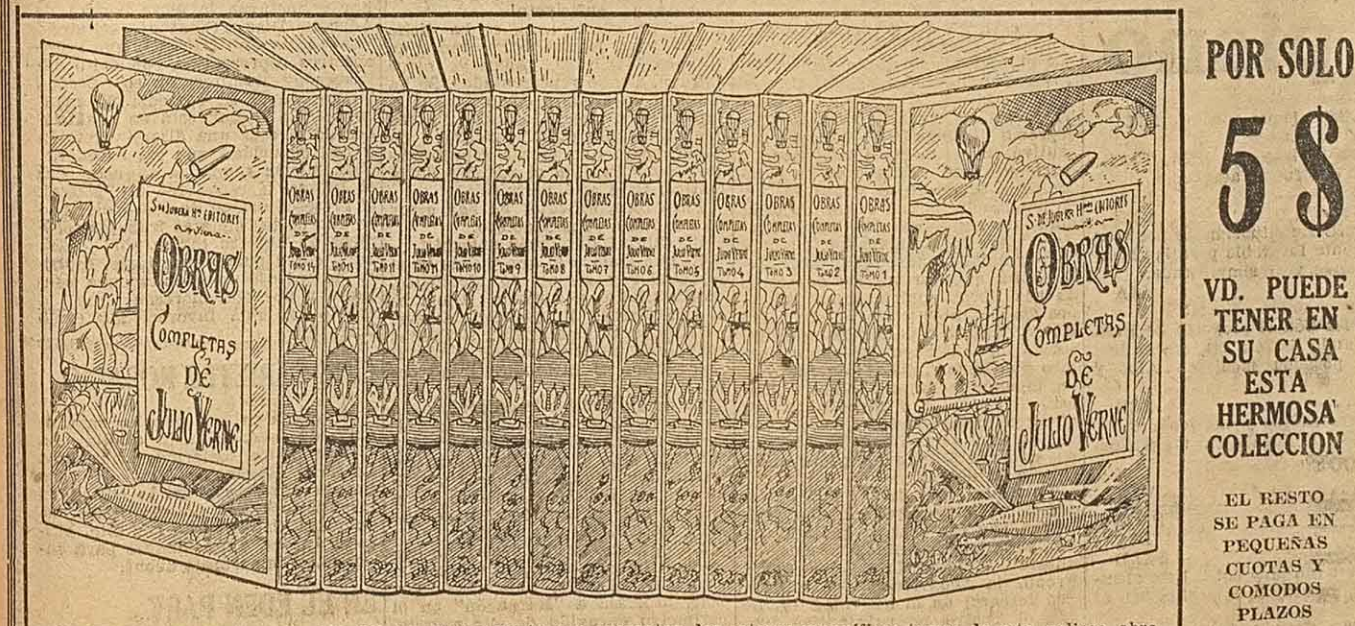 S. DE JUBERA Hºs EDITORES
OBRAS
COMPLETAS
DE
JULIO VERNE
OBRAS
COMPLETAS
DE
JULIO VERNE
TOMO 14
OBRAS
COMPLETAS
DE
JULIO VERNE
TOMO 13
OBRAS
COMPLETAS
DE
JULIO VERNE
OBRAS
COMPLETAS
DE
JULIO VERNE
TOMO 11
OBRAS
COMPLETAS
DE
JULIO VERNE
TOMO 10
OBRAS
COMPLETAS
DE
JULIO VERNE
TOMO 9
OBRAS
COMPLETAS
DE
JULIO VERNE
TOMO 8
OBRAS
COMPLETAS
DE
JULIO VERNE
TOMO 7
OBRAS
COMPLETAS
DE
JULIO VERNE
TOMO 6
OBRAS
COMPLETAS
DE
JULIO VERNE
TOMO 5
OBRAS
COMPLETAS
DE
JULIO VERNE
TOMO 4
OBRAS
COMPLETAS
DE
JULIO VERNE
TOMO 3
OBRAS
COMPLETAS
DE
JULIO VERNE
TOMO 2
OBRAS
COMPLETAS
DE
JULIO VERNE
TOMO 1
S. DE JUBERA Hnos EDITORES
OBRAS
COMPLETAS
DE
JULIO VERNE
POR SOLO
5 $
VD. PUEDE
TENER EN
SU CASA
ESTA
HERMOSA
COLECCION
EL RESTO
SE PAGA EN
PEQUEÑAS
CUOTAS Y
COMODOS
PLAZOS